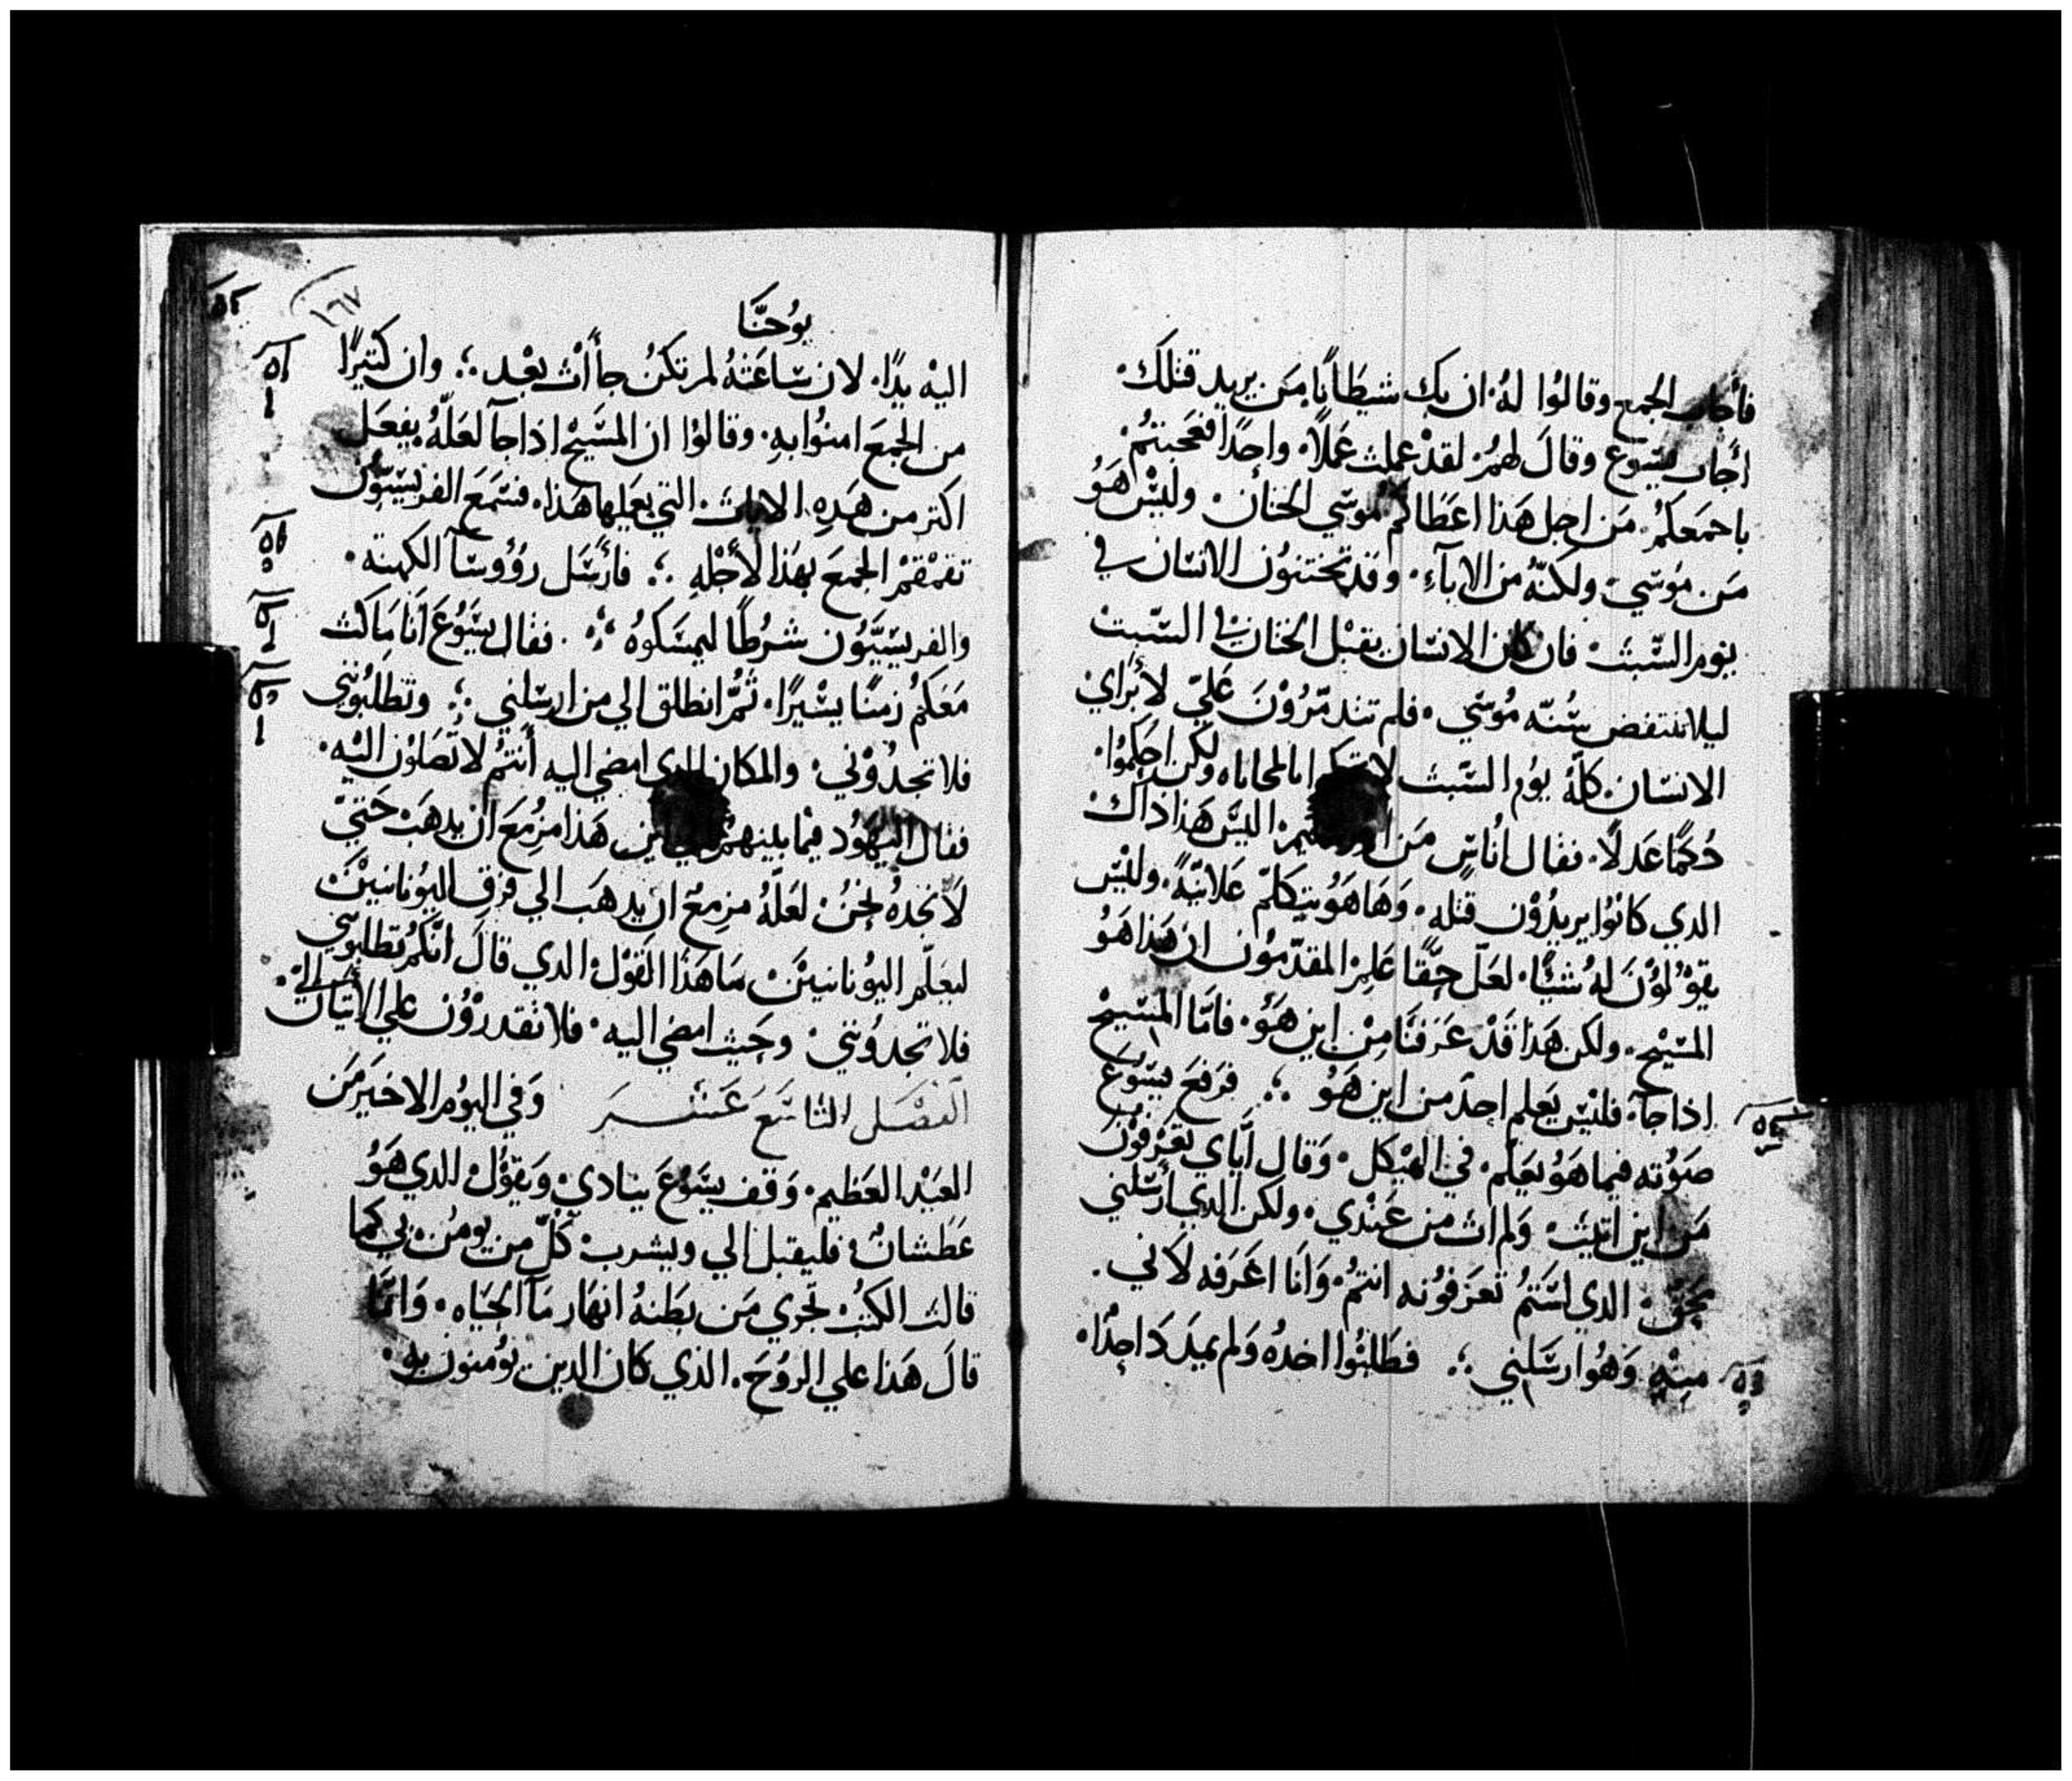 فأجاب الجمع وقالوُا لهُ. ان بك شيطَانًا مَن يريد قتلك.
أجاب يسَوع وقالَ لهمُ لقدْ عملت عَملًا. واحِدًا فعَجبتمُ
باجمَعكمُ. مَن اجل هَذا اعَطَاكم موسَي الختان. وليسْ هَوُ
مَن موَسَي. ولكنّهُ من الابآءِ. وقدَ تختنوُن الانسَان في
يوم السَّبت. فان كان الانسَان يقبْل الختان في السَّبت
ليلا تنتفض سُنّه موُسَي. فلم تندمّرُوْنَ عَليّ لأبرَاي
الانسَان كلّهُ يوُم السَّبت ولكن احكِموُا.
حُكمًا عَدلًا. فقال أنُاسٍ مَن اليسَ هَذا ذاكْ
الدي كانوُا يريدُوْن قتلِه. وَهَا هَوُ يتكَلّم عَلانيّةً. وليسْ
يقوْلوُنَ لهُ شيئًا. لعَلّ حِقًّا عَلمِ المقدّموُن ان هَذا هَوُ
المسَيْح. ولكن هَذا قَدْ عَرَفنَا مِنْ اين هَوُ. فامّا المسَيح
اذا جآ. فليسْ يَعلم احِدٌ من اين هَوُ ؞ فرَفعَ يسَوعَ
صَوُته فيما هَوُ يعَلّم. في الهيْكل. وَقال ايّاي تعَرْفوْن
مَن اين اتيت. وَلم ات من عَنْدي. ولكن الدي أرسَلني
بحَق. الدي لسَتمُ تعَرَفوُنه انتمُ. وَأنَا اعَرَفه لاني.
مِنهُ وَهُوَ ارسَلني ؞ فطَلبُوا اخدُه وَلم يميدَ دَ احِدٌا.
١٦٧
يوُحنَّا
اليْه يدًا. لان سَاعَتهُ لم تكنُ جأأتْ بعْد ؞ وان كثيرًا
من الجمَعَ امنوُا بهِ. وقالوُا ان المسَيْح اذا جآ لعَلّهُ يفعَل
اكتر من هَدِه الايات. التي يعَملها هَذا. فسَمَعَ الفريسَيّوُن
تقمْقمُ الجمَعَ بهَذا لأجْله ؞ فأرْسَل رؤُوسَآ الكهنة.
والفريسَيّوُن شرُطًا ليمسَكوُهُ ؞ فقال يسَوُعَ أنَا مَاكث
مَعَكمُ زمنًا يسْيرًا. ثُمّ انطلق الي من ارسَلني ؞ وتطلبُوُنني
فلا تجدُوْني. والمكان الدي امضي اليه أنتمُ لا تصَلوُن اليْه.
فقال اليهَوُد فيمْا بينهمُ الي اين هَذا مزمِعَ ان يدهَبَ حَتيّ
لَا نجدهُ نحنُ. لعَلّهُ مزمِعٌ ان يدهَبَ الي فرَقِ اليوُنانييْن
ليعَلّم اليوُنانييْن. مَا هَذا القَوْل الدي قالَ انّكمُ تطلبوُني
فلا تجدوُنني. وحَيث امضي اليه. فلا تقدروُن علي الأتيان إليّ.
الفصْل التاسَع عَشر وَفي اليوُم الاخيَر مَن
العَيْد العَظيم. وَقف يسَوُعَ ينادي. وَيقوُل الدي هَوُ
عَطَشان. فليقبل الي ويشرب. كلّ من يومُن بي كما
قالت الكتبُ. تجرَي مَن بطَنهُ انهَار مَآ الحيَاه. وَانمّا
قالَ هَذا علي الروُحَ. الذي كان الدين يوُمنون به.